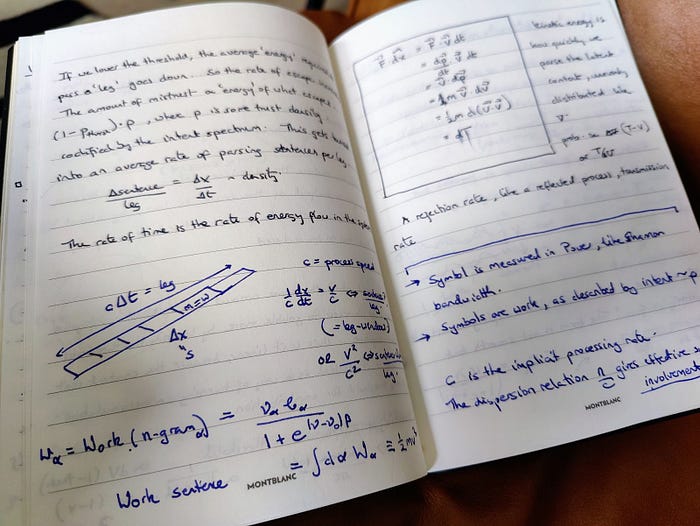 If we lower the threshold, the average 'energy'
pass a 'leg' goes down. So the rate of escape
The amount of mistrust ~ energy of what escaped
(1 - p) · p, where p is some trust density
codified by the intent spectrum. This gets
into an average rate of parsing sentences per leg.
Δsentence / leg = Δx / Δt ~ density.
The rate of time is the rate of energy flow in the
cΔt = leg
m = w
Δx
"s
c = process speed
1/c dx/dt = v/c ⇔
leg.
OR v²/c² ⇔
leg.
Wα = Work (n-gram α) = / 1 + e^(v-v₀)p
Work sentence = ∫dα Wα ≡ ½mv²
MONTBLANC
F⃗ dx⃗ = F⃗ · v⃗ dt
= dp⃗/dt · v⃗ dt
= v⃗ · dp⃗
= ½m d(v⃗·v⃗)
= dT
kinetic energy is
how quickly we
parse the latent
distributed like
v.
(T-V)
A rejection rate, like a reflected process, transmission
rate
→ Symbol is measured in Power, like Shannon
bandwidth.
→ Symbols are work, as described by intent ~ p
C is the implicit processing rate.
The dispersion relation n/c gives effective
involvement
MONTBLANC